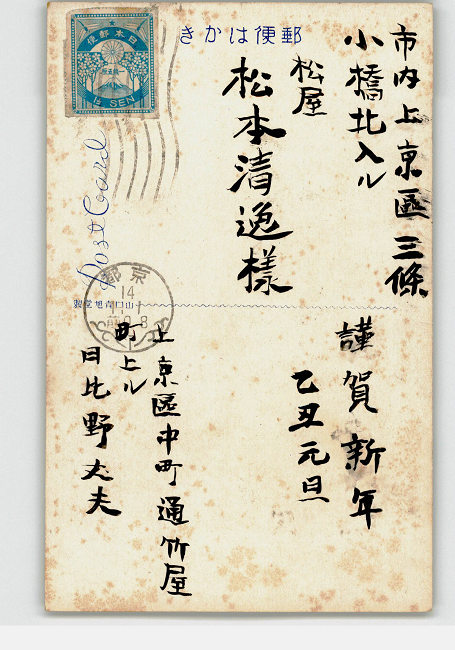 きかは便郵
日本郵便
1½ SEN
Post Card
市内上京區三條
小橋北入ル
松屋
松本清逸様
山口青旭堂製
謹賀新年
乙丑元旦
上京區中町通竹屋
町上ル
日比野丈夫
京
14